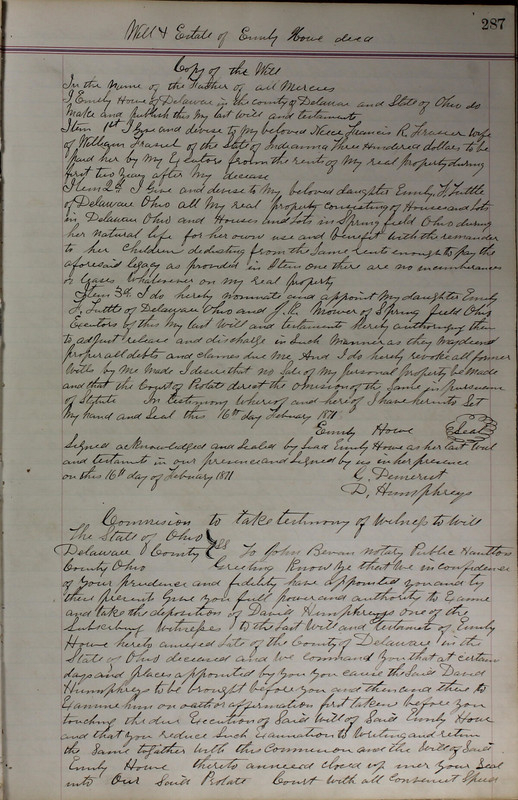 287
Will & Estate of Emily Howe decd
Copy of the Will
In the Name of the Father of all Mercies
I, Emily Howe of Delaware in the county of Delaware and State of Ohio do
Make and publish this My last will and testament
Item 1st I Give and devise to my beloved Niece Francis R. Frasier wife
of William Frasiel of the State of Indianna Three Hundered dollars to be
paid her by My Executors from the rents of My real Property during
first two Years after My decease
Item 2d I Give and devise to My beloved daughter Emily F. Tuttle
of Delaware Ohio all My real property Consisting of House and Lots
in Delaware Ohio and Houses and Lots in Springfield Ohio during
her natural life for her own use and benefit with the remainder
to her Children deducting from the Same rents enough to pay the
aforesaid legacy as provided in Item one there are no incumberances
or leases Whatever on my real Property
Item 3d I do hereby Nominate and appoint My daughter Emily
F. Tuttle of Delaware Ohio and J. R. Mower of Spring field Ohio
Executors of this My last Will and testament hereby authorizing them
to adjust release and discharge in Such Manner as they may deem
proper all debts and claims due Me And I do hereby revoke all former
Wills by Me Made I desire that no Sale of My personal Property be Made
and that the Court of Probate derect the omision of the Same in pursuance
of Statute In testimony Whereof and hereof I have hereunto Set
My hand and Seal this 16th day February 1871
Emily Howe Seal
Signed acKnowledged and Sealed by Said Emily Howe as her last Will
and testament in our presence and Signed by us in her presence
on this 16th day of February 1871
C. Demerest
D. Humphreys
Commision to take testimony of witness to Will
The State of Ohio
Delaware County SS To John Bevan Notary Public Hamilton
County Ohio Greeting Know Ye that We in confidence
of Your prudence and fidelity have appointed you and by
these present Give you full power and authority to Examine
and take the deposition of David Humphreys one of the
Subscribing Witnesses to the Last Will and testament of Emily
Howe hereto annexed late of the County of Delaware in the
State of Ohio deceased and We command You that at certain
days and places appointed by You You cause the Said David
Humphreys to be brought before you and then and there to
Examine him on oath or affirmation first taken before you
touching the due Execution of Said Will of Said Emily Howe
and that you reduce Such Examination to Writing and return
the Same together with this Commision and the Will of Said
Emily Howe thereto annexed closed up under Your Seal
into Our Said Probate Court with all Convenient Speed